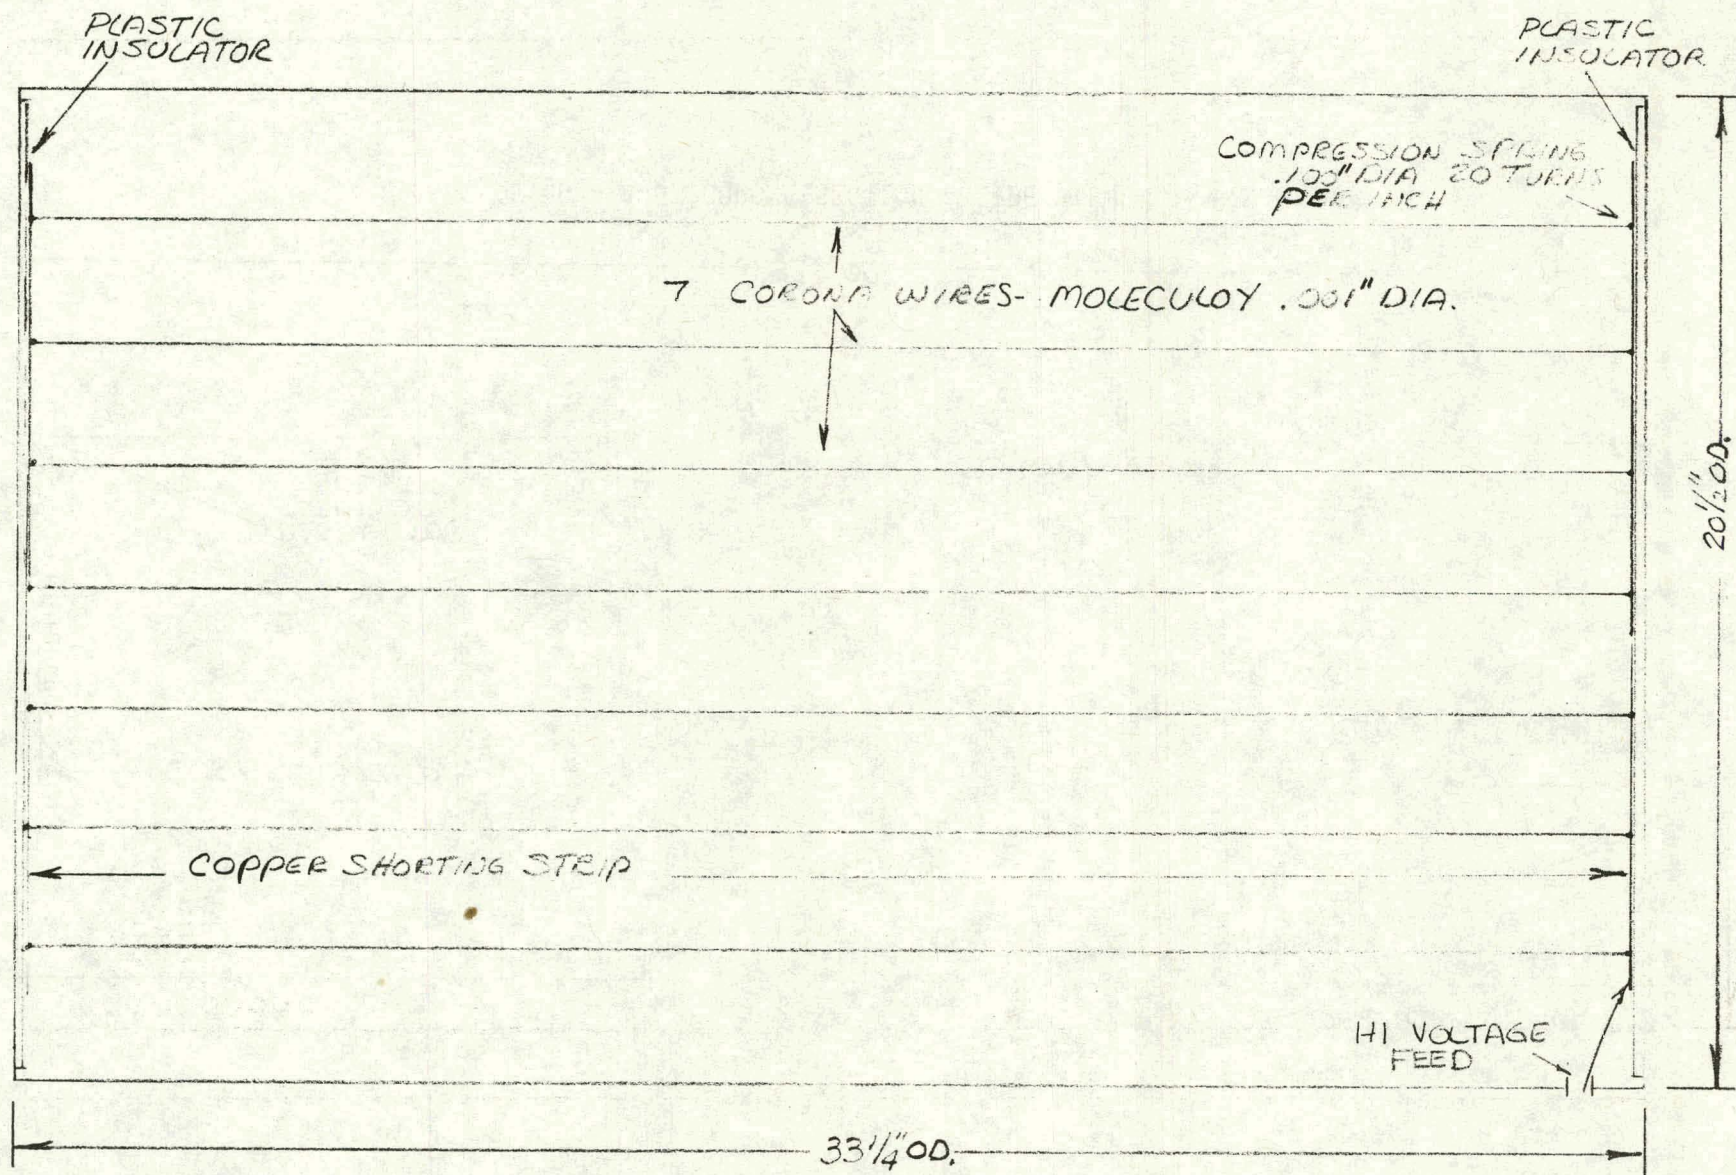 PLASTIC
INSULATOR
PLASTIC
INSULATOR
COMPRESSION SPRING
.100" DIA 20 TURNS
PER INCH
7 CORONA WIRES- MOLECULOY .001" DIA.
20 1/2" OD.
COPPER SHORTING STRIP
HI VOLTAGE
FEED
33 1/4" OD.